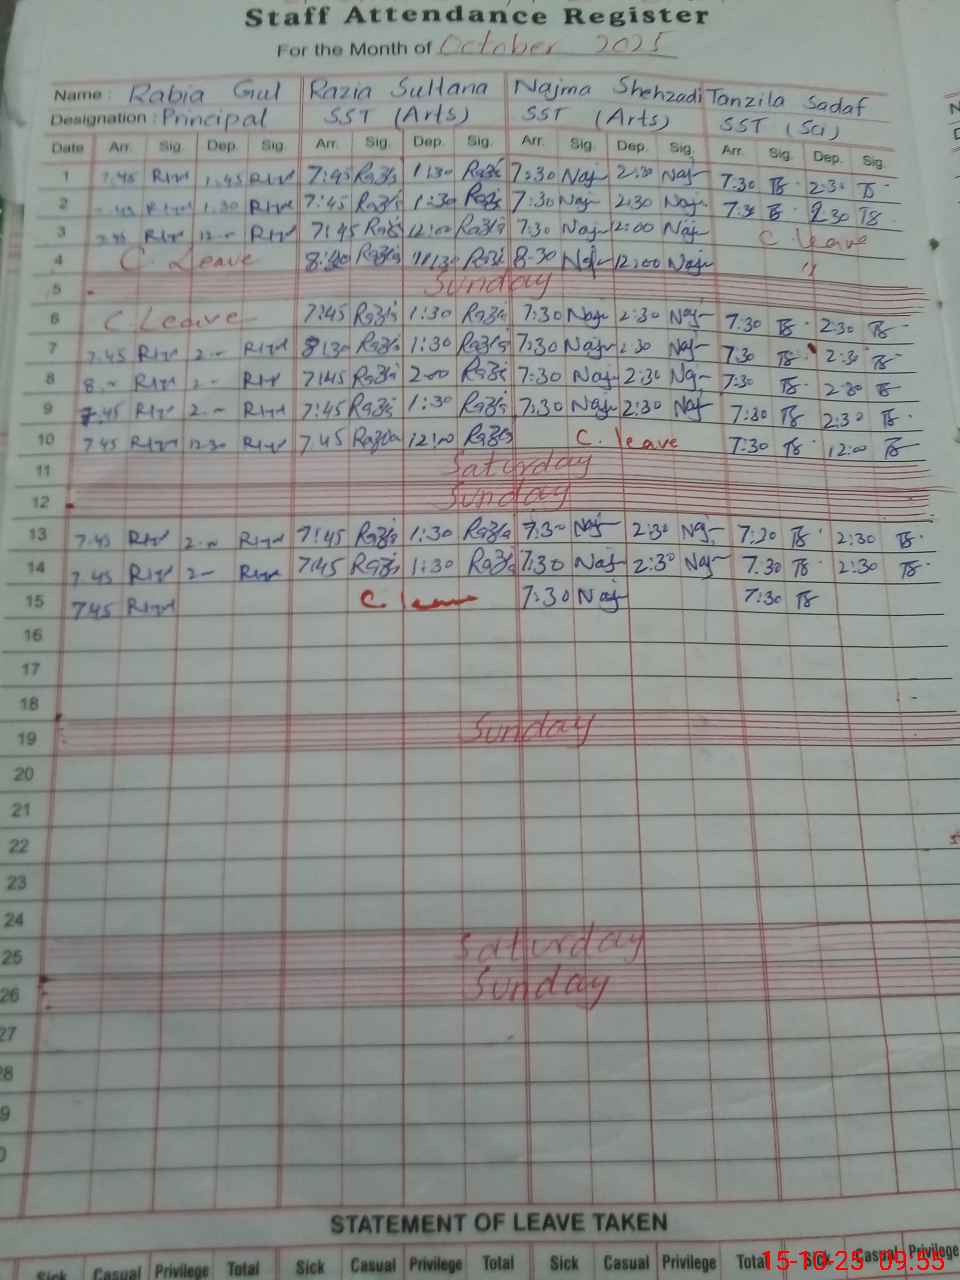 Staff Attendance Register
For the Month of October 2025
Name : Rabia Gul Razia Sultana Najma Shehzadi Tanzila Sadaf
Designation : Principal SST (Arts) SST (Arts) SST (Sci)
Date Arr. Sig. Dep. Sig. Arr. Sig. Dep. Sig. Arr. Sig. Dep. Sig. Arr. Sig. Dep. Sig.
1 7.45 1.45 7:45 1:30 7:30 Naj 2:30 Naj 7:30 TS 2:30 TS
2 1.30 7:45 1:30 7:30 Naj 2:30 Naj 7:30 TS 2:30 TS
3 7:45 12:00 7:30 Naj 12:00 Naj C. leave
4 C. Leave 8:30 11:30 8-30 Naj 12:00 Naj "
5 Sunday
6 C. Leave 7:45 1:30 7:30 Naj 2:30 Naj 7:30 TS 2:30 TS
7 7.45 2.- 8:30 1:30 7:30 Naj 2:30 Naj 7:30 TS 2:30 TS
8 8.- 2.- 7:45 2:00 7:30 Naj 2:30 Naj 7:30 TS 2:30 TS
9 7.45 2.- 7:45 1:30 7:30 Naj 2:30 Naj 7:30 TS 2:30 TS
10 7.45 12.30 7.45 12:00 C. leave 7:30 TS 12:00 TS
11 Saturday
12 Sunday
13 7.45 2.- 7:45 1:30 7:30 Naj 2:30 Naj 7:30 TS 2:30 TS
14 7.45 2- 7:45 1:30 7:30 Naj 2:30 Naj 7:30 TS 2:30 TS
15 7.45 C leave 7:30 Naj 7:30 TS
16
17
18
19 Sunday
20
21
22
23
24
25 Saturday
26 Sunday
27
8
9
0
STATEMENT OF LEAVE TAKEN
Sick Casual Privilege Total Sick Casual Privilege Total Sick Casual Privilege Total Sick Casual Privilege
15-10-25 09:55